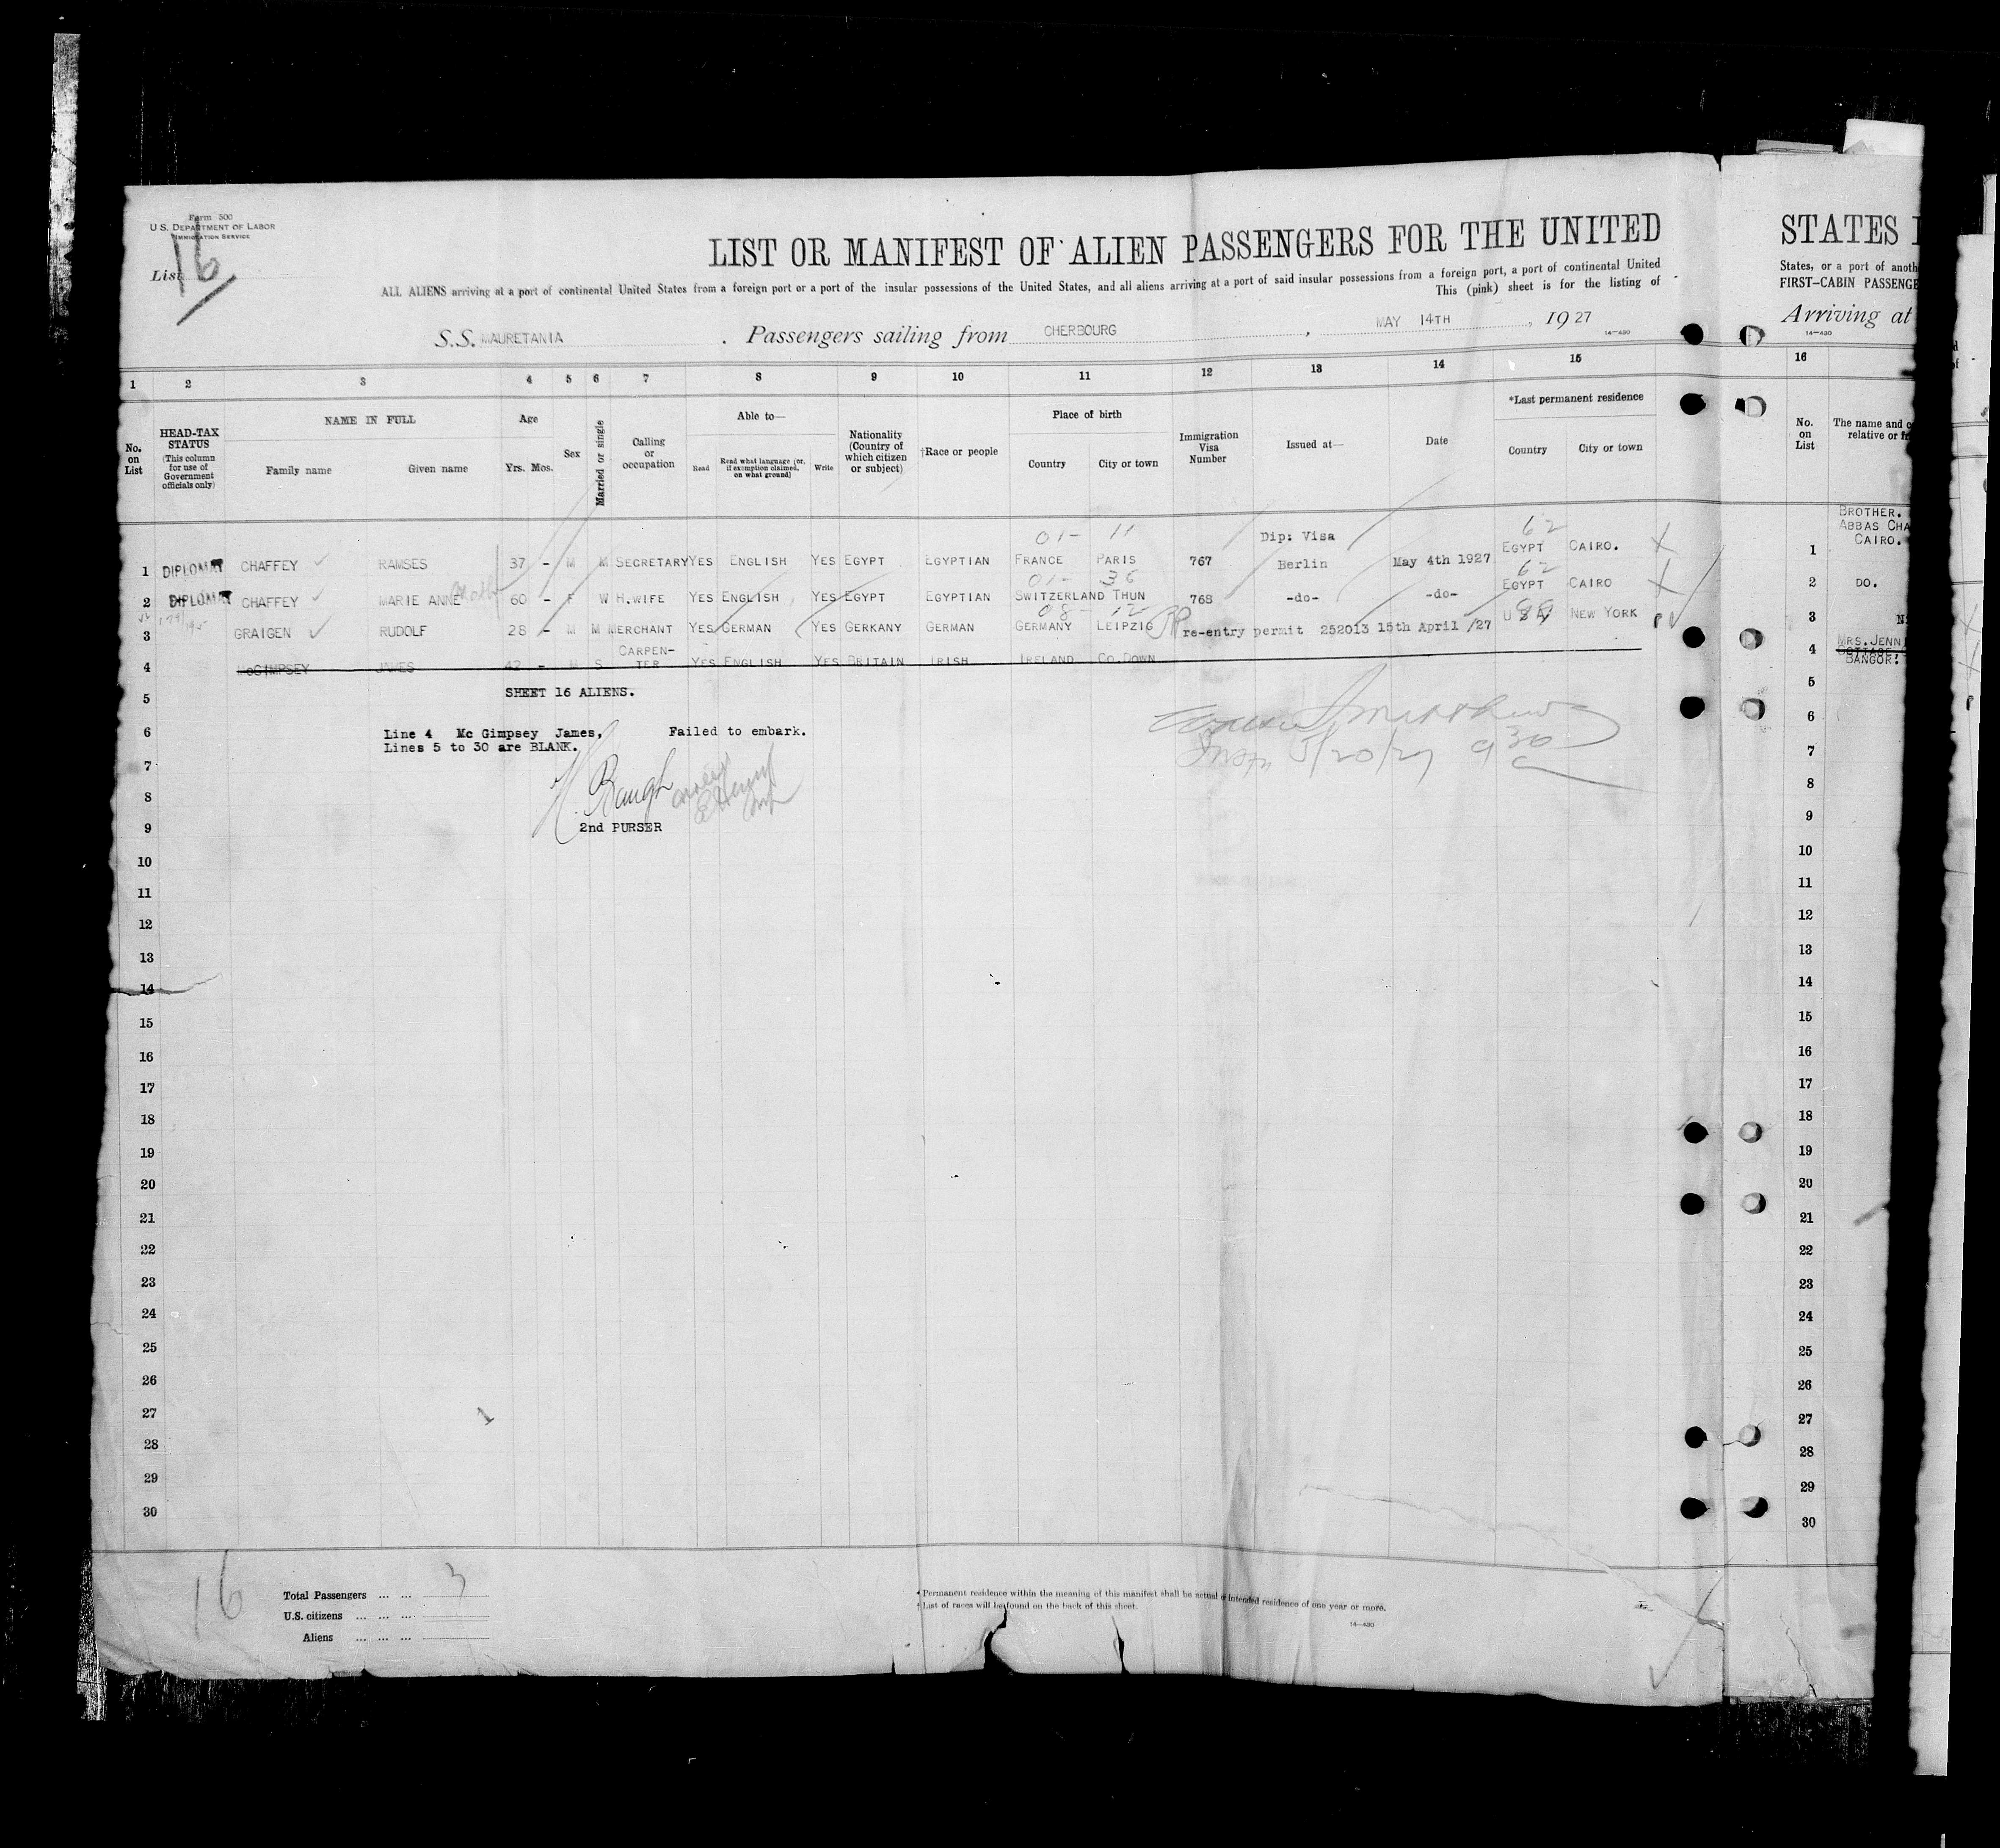 Form 500
U.S. DEPARTMENT OF LABOR
IMMIGRATION SERVICE
List 16
LIST OR MANIFEST OF ALIEN PASSENGERS FOR THE UNITED
ALL ALIENS arriving at a port of continental United States from a foreign port or a port of the insular possessions of the United States, and all aliens arriving at a port of said insular possessions from a foreign port, a port of continental United
This (pink) sheet is for the listing of
S.S. MAURETANIA . Passengers sailing from CHERBOURG , MAY 14TH , 1927
14—430
STATES
States, or a port of anoth
FIRST-CABIN PASSENGE
Arriving at
14—430
1 2 3 4 5 6 7 8 9 10 11 12 13 14 15 16
No. on List
HEAD-TAX STATUS (This column for use of Government officials only)
NAME IN FULL
Family name Given name
Age
Yrs. Mos.
Sex
Married or single
Calling or occupation
Able to—
Read Read what language (or, if exemption claimed, on what ground) Write
Nationality (Country of which citizen or subject)
†Race or people
Place of birth
Country City or town
Immigration Visa Number
Issued at—
Date
*Last permanent residence
Country City or town
No. on List
The name and
relative or
01- 11 Dip: Visa 62
1 DIPLOMAT CHAFFEY RAMSES 37 - M M SECRETARY YES ENGLISH YES EGYPT EGYPTIAN FRANCE PARIS 767 Berlin May 4th 1927 EGYPT CAIRO. 1 BROTHER. ABBAS CHA CAIRO.
01- 36 62
2 DIPLOMAT CHAFFEY MARIE ANNE 60 - F W H.WIFE YES ENGLISH YES EGYPT EGYPTIAN SWITZERLAND THUN 768 -do- -do- EGYPT CAIRO 2 DO.
08- 12
3 GRAIGEN RUDOLF 28 - M M MERCHANT YES GERMAN YES GERKANY GERMAN GERMANY LEIPZIG re-entry permit 252013 15th April /27 USA NEW YORK 3
4 McGIMPSEY JAMES 42 - M S CARPEN-TER YES ENGLISH YES BRITAIN IRISH IRELAND CO.DOWN 4 MRS.JENN COTTAGE, BANGOR.
5 SHEET 16 ALIENS. 5
6 Line 4 Mc Gimpsey James, Failed to embark. 6
Lines 5 to 30 are BLANK.
5/20/27 9 30
7 7
8 H. Baugh 8
9 2nd PURSER 9
10 10
11 11
12 12
13 13
14 14
15 15
16 16
17 17
18 18
19 19
20 20
21 21
22 22
23 23
24 24
25 25
26 26
27 27
28 28
29 29
30 30
16
Total Passengers ... ... 3
U.S. citizens ... ... ...
Aliens ... ... ...
* Permanent residence within the meaning of this manifest shall be actual or intended residence of one year or more.
† List of races will be found on the back of this sheet.
14—430